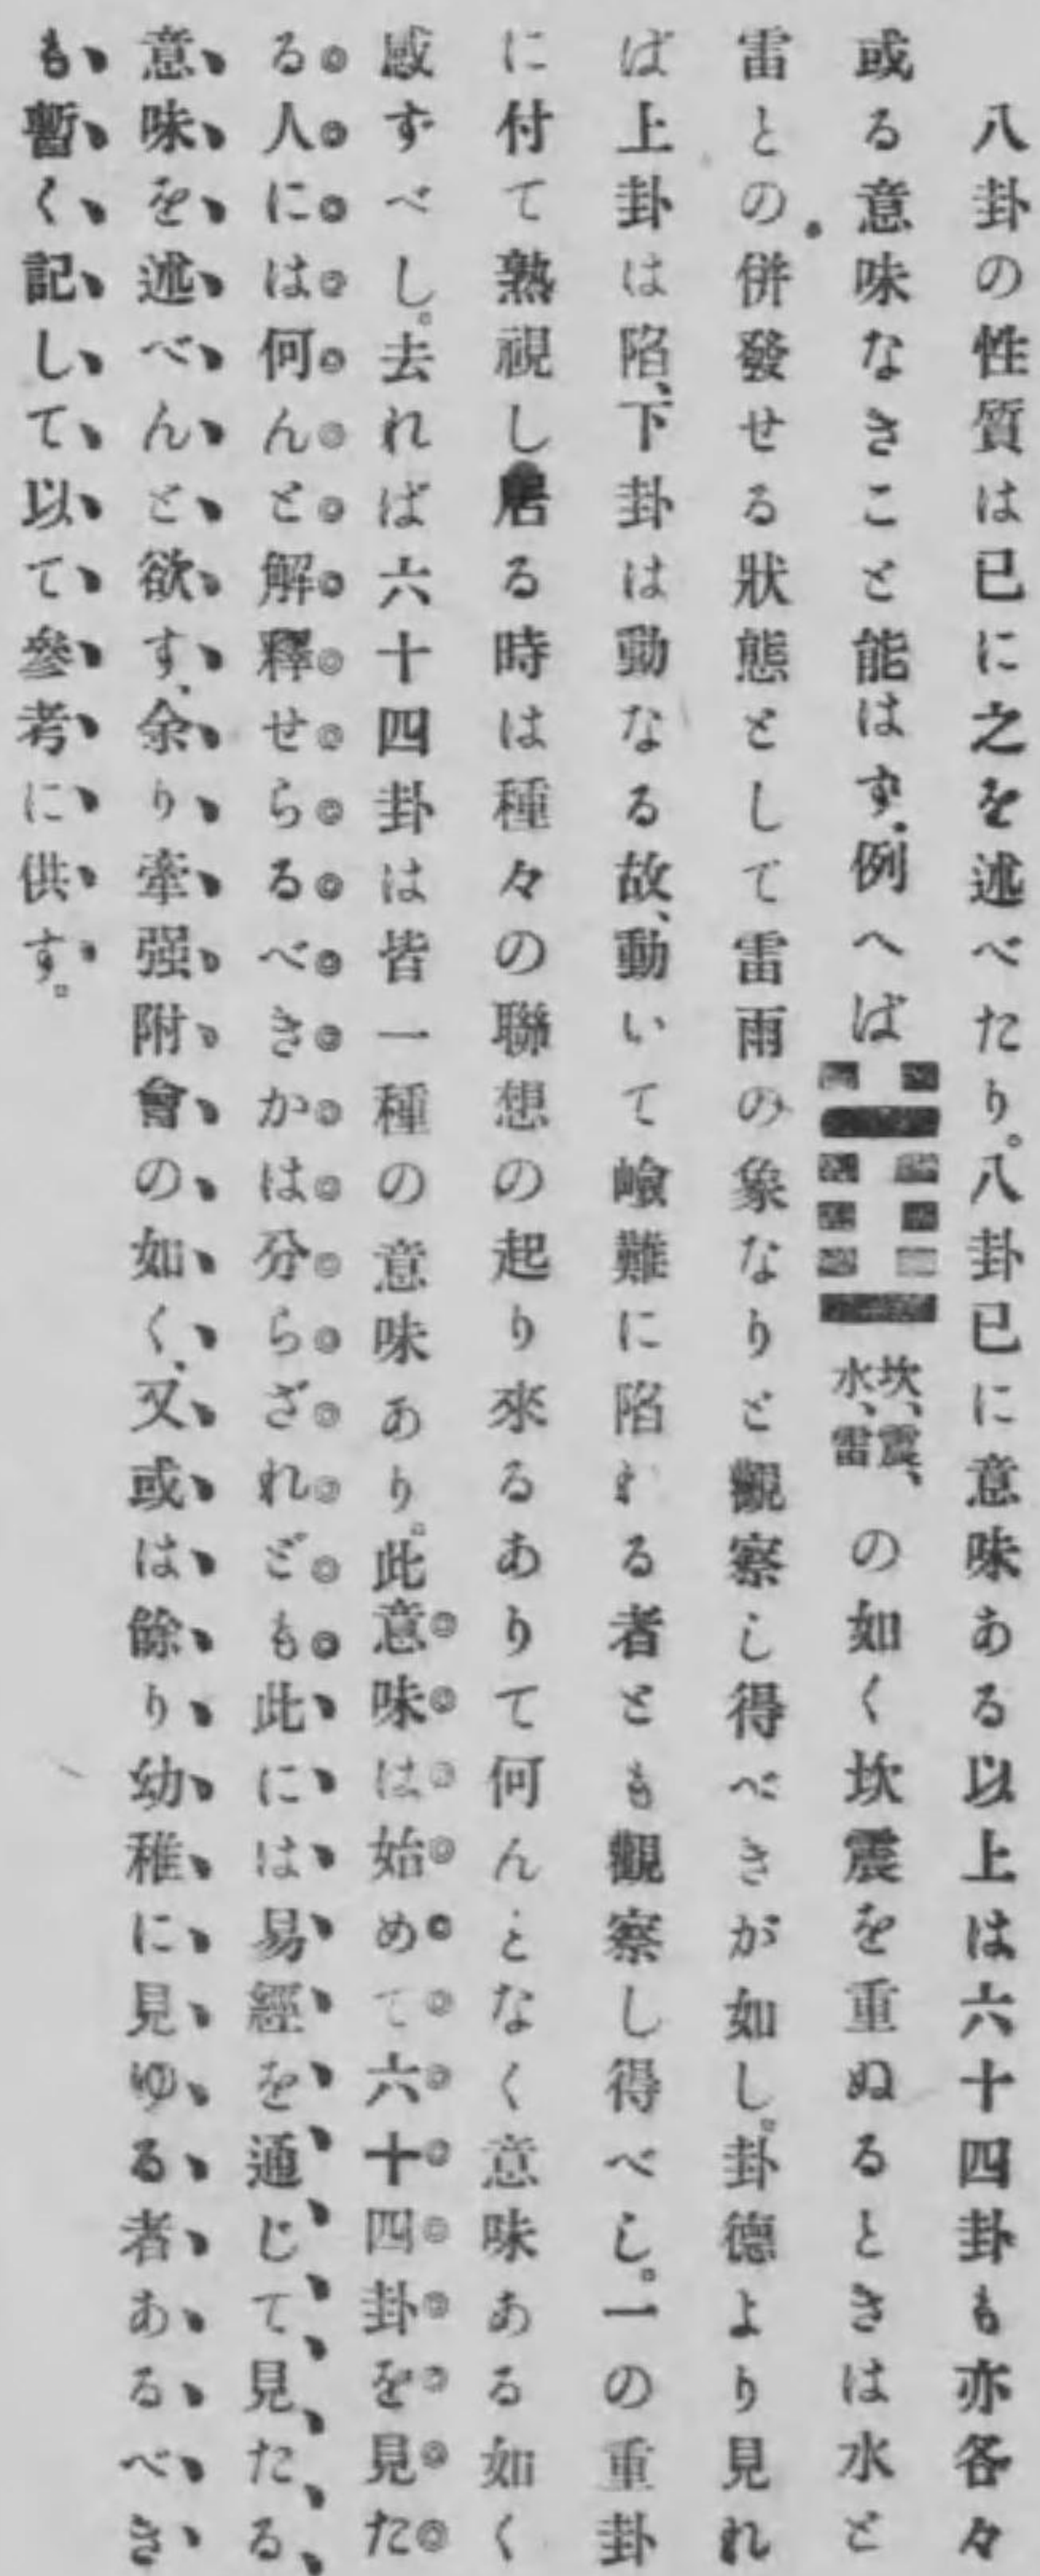 八卦の性質は已に之を述べたり。八卦已に意味ある以上は六十四卦も亦各々
或る意味なきこと能はず、例へば䷂坎、震、水、雷の如く坎震を重ぬるときは水と
雷との併發せる狀態として雷雨の象なりと觀察し得べきが如し。卦德より見れ
ば上卦は陷、下卦は動なる故、動いて嶮難に陷れる者とも觀察し得べし。一の重卦
に付て熟視し居る時は種々の聯想の起り來るありて何んとなく意味ある如く
感ずべし。去れば六十四卦は皆一種の意味あり。此意味は始めて六十四卦を見た
る人には何んと解釋せらるべきかは分らざれども此には易經を通じて見たる
意味を述べんと欲す、余り牽强附會の如く、又或は餘り幼稚に見ゆる者あるべき
も暫く記して以て參考に供す。